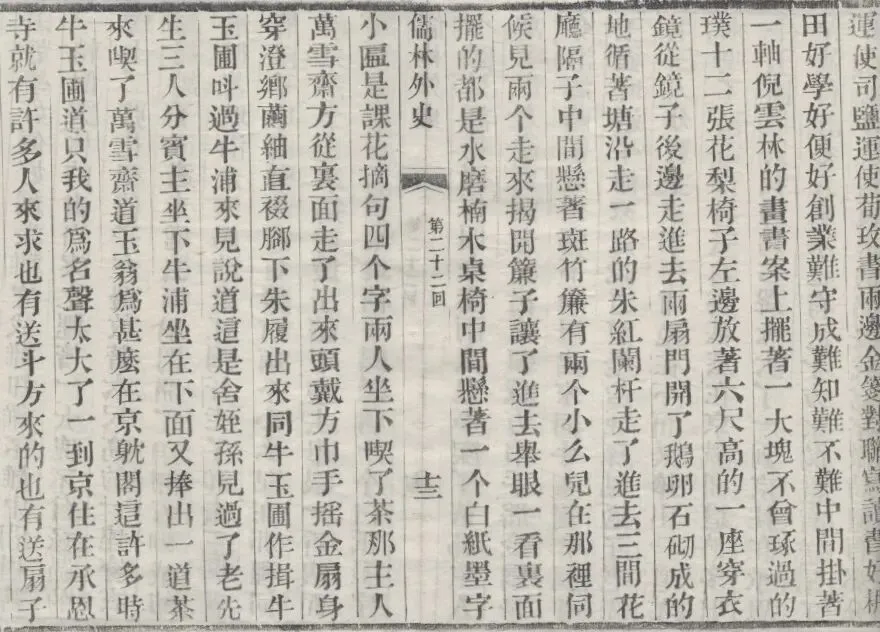 運使司鹽運使荀玫書兩邊金箋對聯寫讀書好耕
田好學好便好創業難守成難知難不難中間掛著
一軸倪雲林的畫書案上擺著一大塊不曾琢過的
璞十二張花梨椅子左邊放著六尺高的一座穿衣
鏡從鏡子後邊走進去兩扇門開了鵝卵石砌成的
地循著塘沿走一路的朱紅闌杆走了進去三間花
廳隔子中間懸著斑竹簾有兩个小么兒在那裡伺
候見兩个走來揭開簾子讓了進去舉眼一看裏面
擺的都是水磨楠木桌椅中間懸著一个白紙墨字
儒林外史 第二十二回 十三
小匾是課花摘句四个字兩人坐下喫了茶那主人
萬雪齋方從裏面走了出來頭戴方巾手搖金扇身
穿澄鄉繭紬直裰腳下朱履出來同牛玉圃作揖牛
玉圃呌過牛浦來見說道這是舍姪孫見過了老先
生三人分賓主坐下牛浦坐在下面又捧出一道茶
來喫了萬雪齋道玉翁爲甚麼在京躭閣這許多時
牛玉圃道只我的爲名聲太大了一到京住在承恩
寺就有許多人來求也有送斗方來的也有送扇子